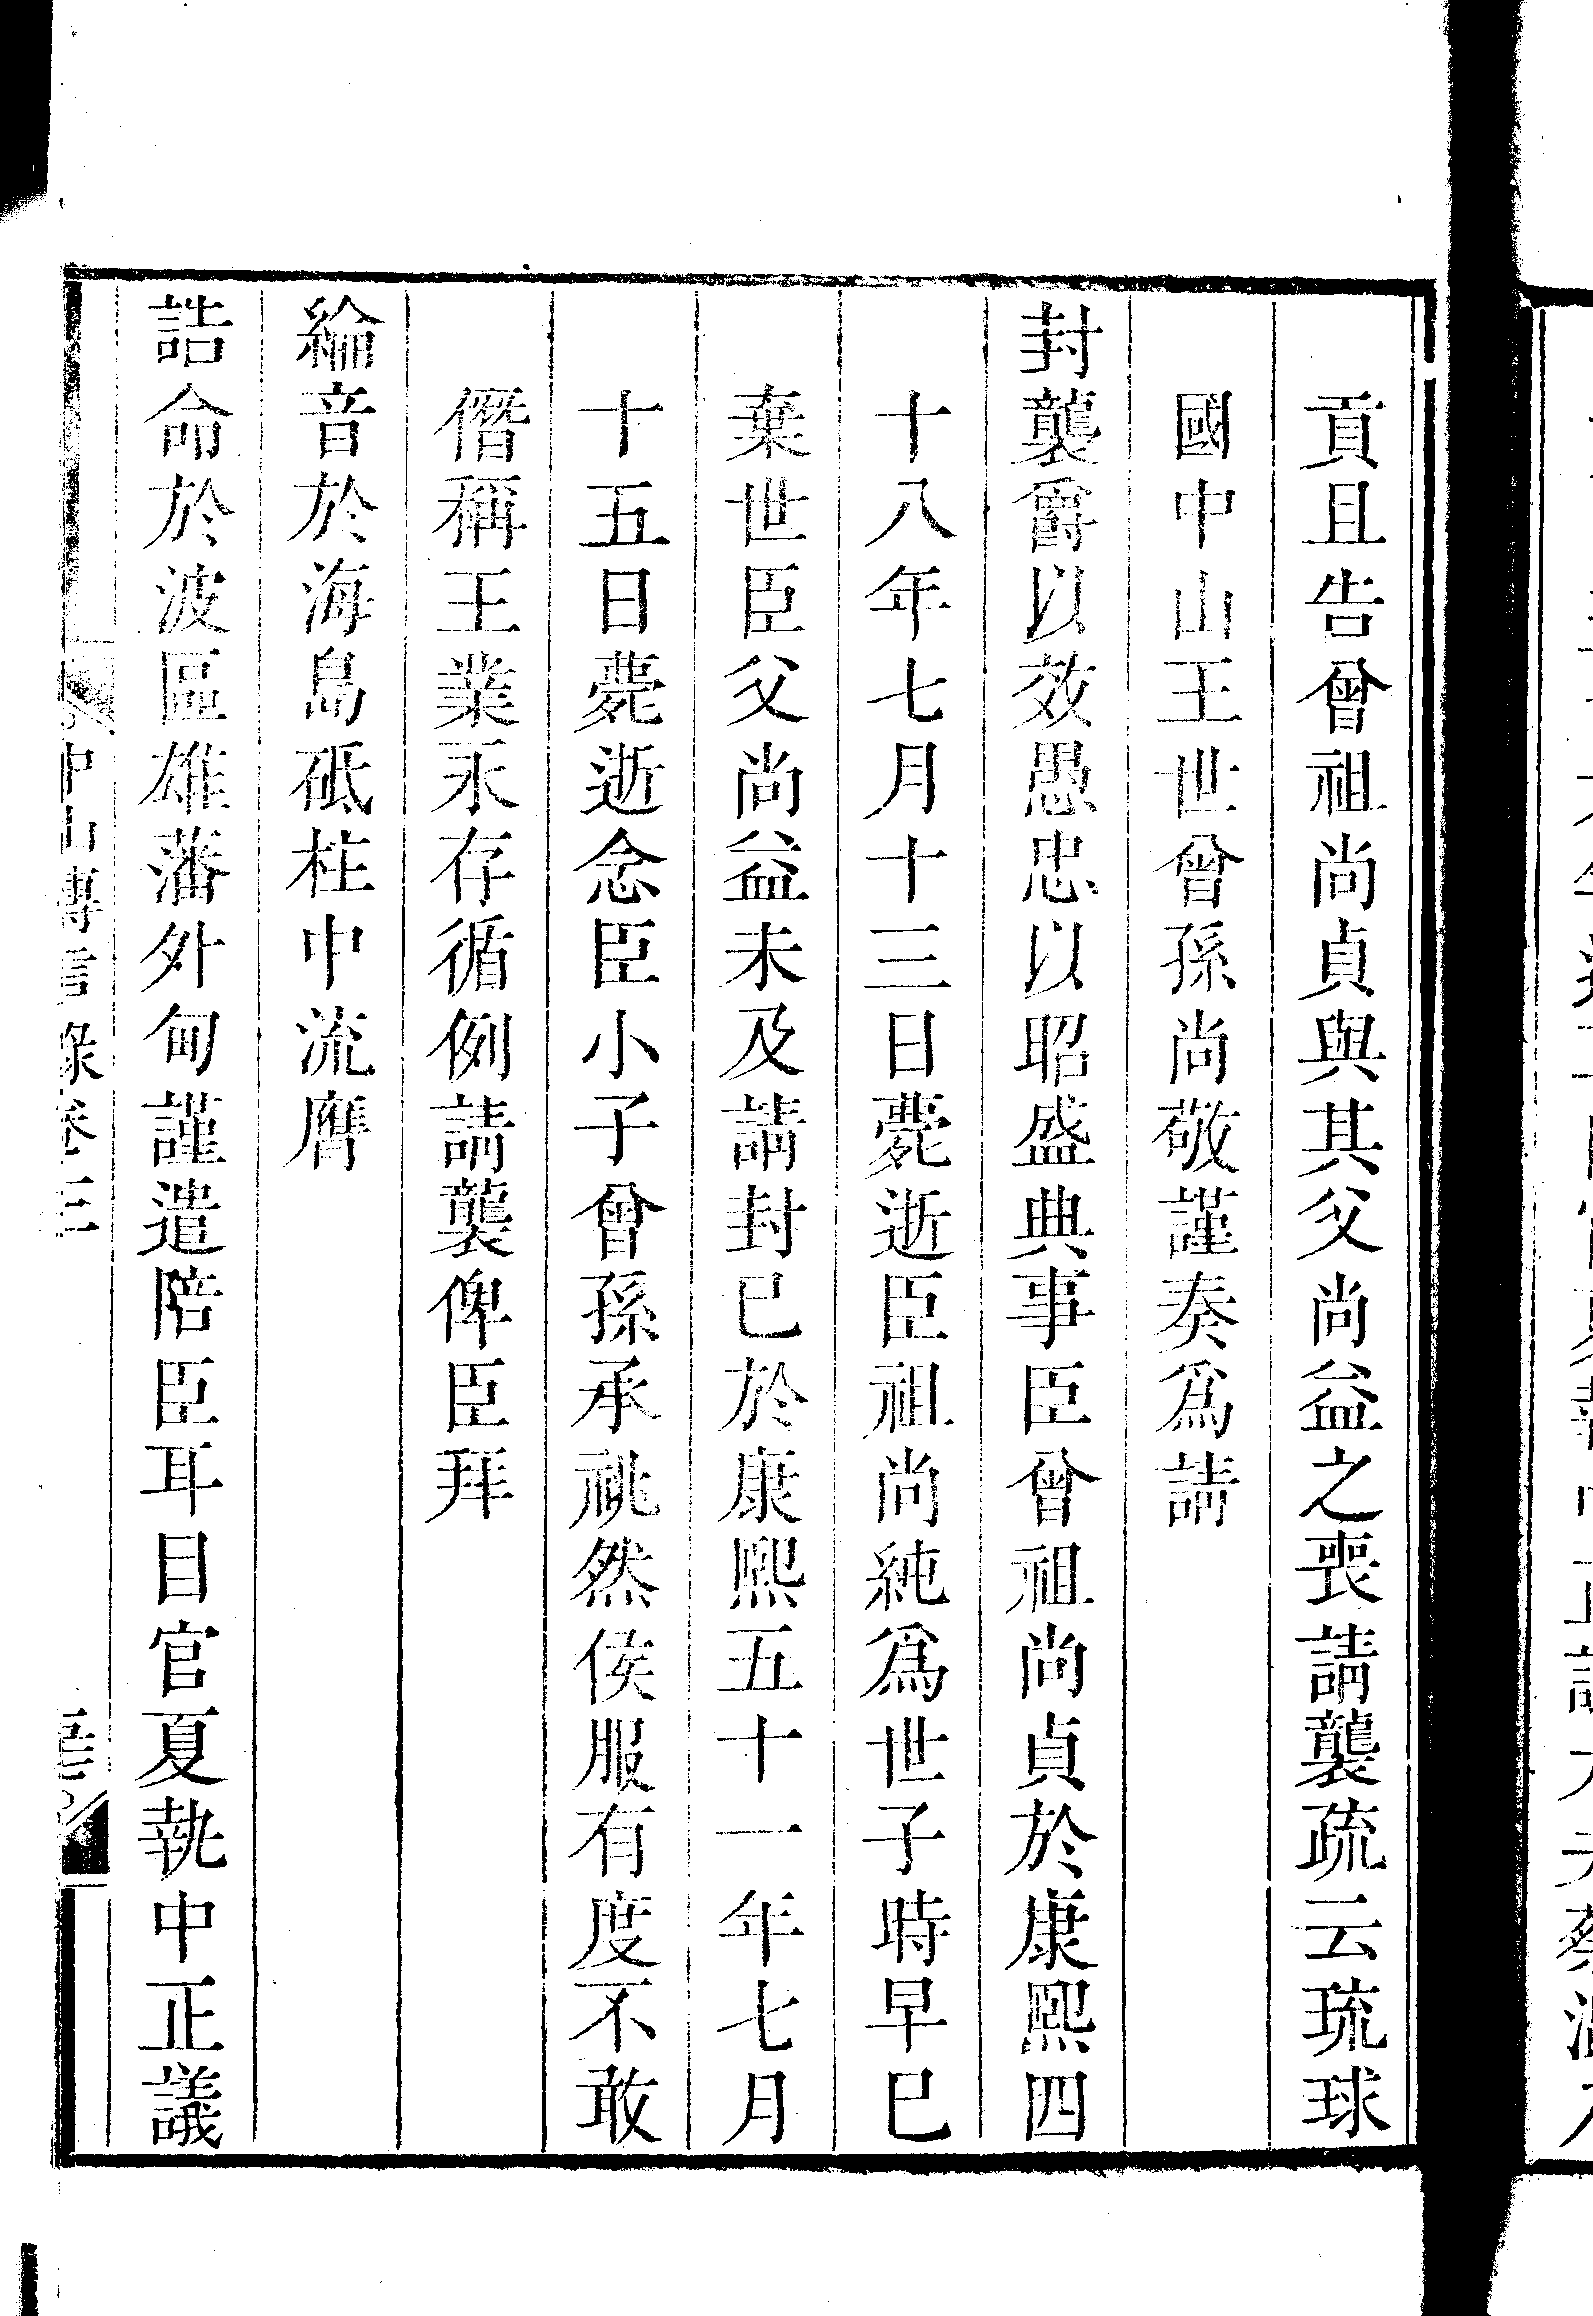 貢且告曾祖尚貞與其父尚益之喪請襲疏云琉球
國中山王世曾孫尚敬謹奏爲請
封襲爵以效愚忠以昭盛典事臣曾祖尚貞於康熙四
十八年七月十三日薨逝臣祖尚純爲世子時早已
棄世臣父尚益未及請封已於康熙五十一年七月
十五日薨逝念臣小子曾孫承祧然侯服有度不敢
僭稱王業永存循例請襲俾臣拜
綸音於海島砥柱中流膺
誥命於波區雄藩外甸謹遣陪臣耳目官夏執中正議
中山傳信錄卷三